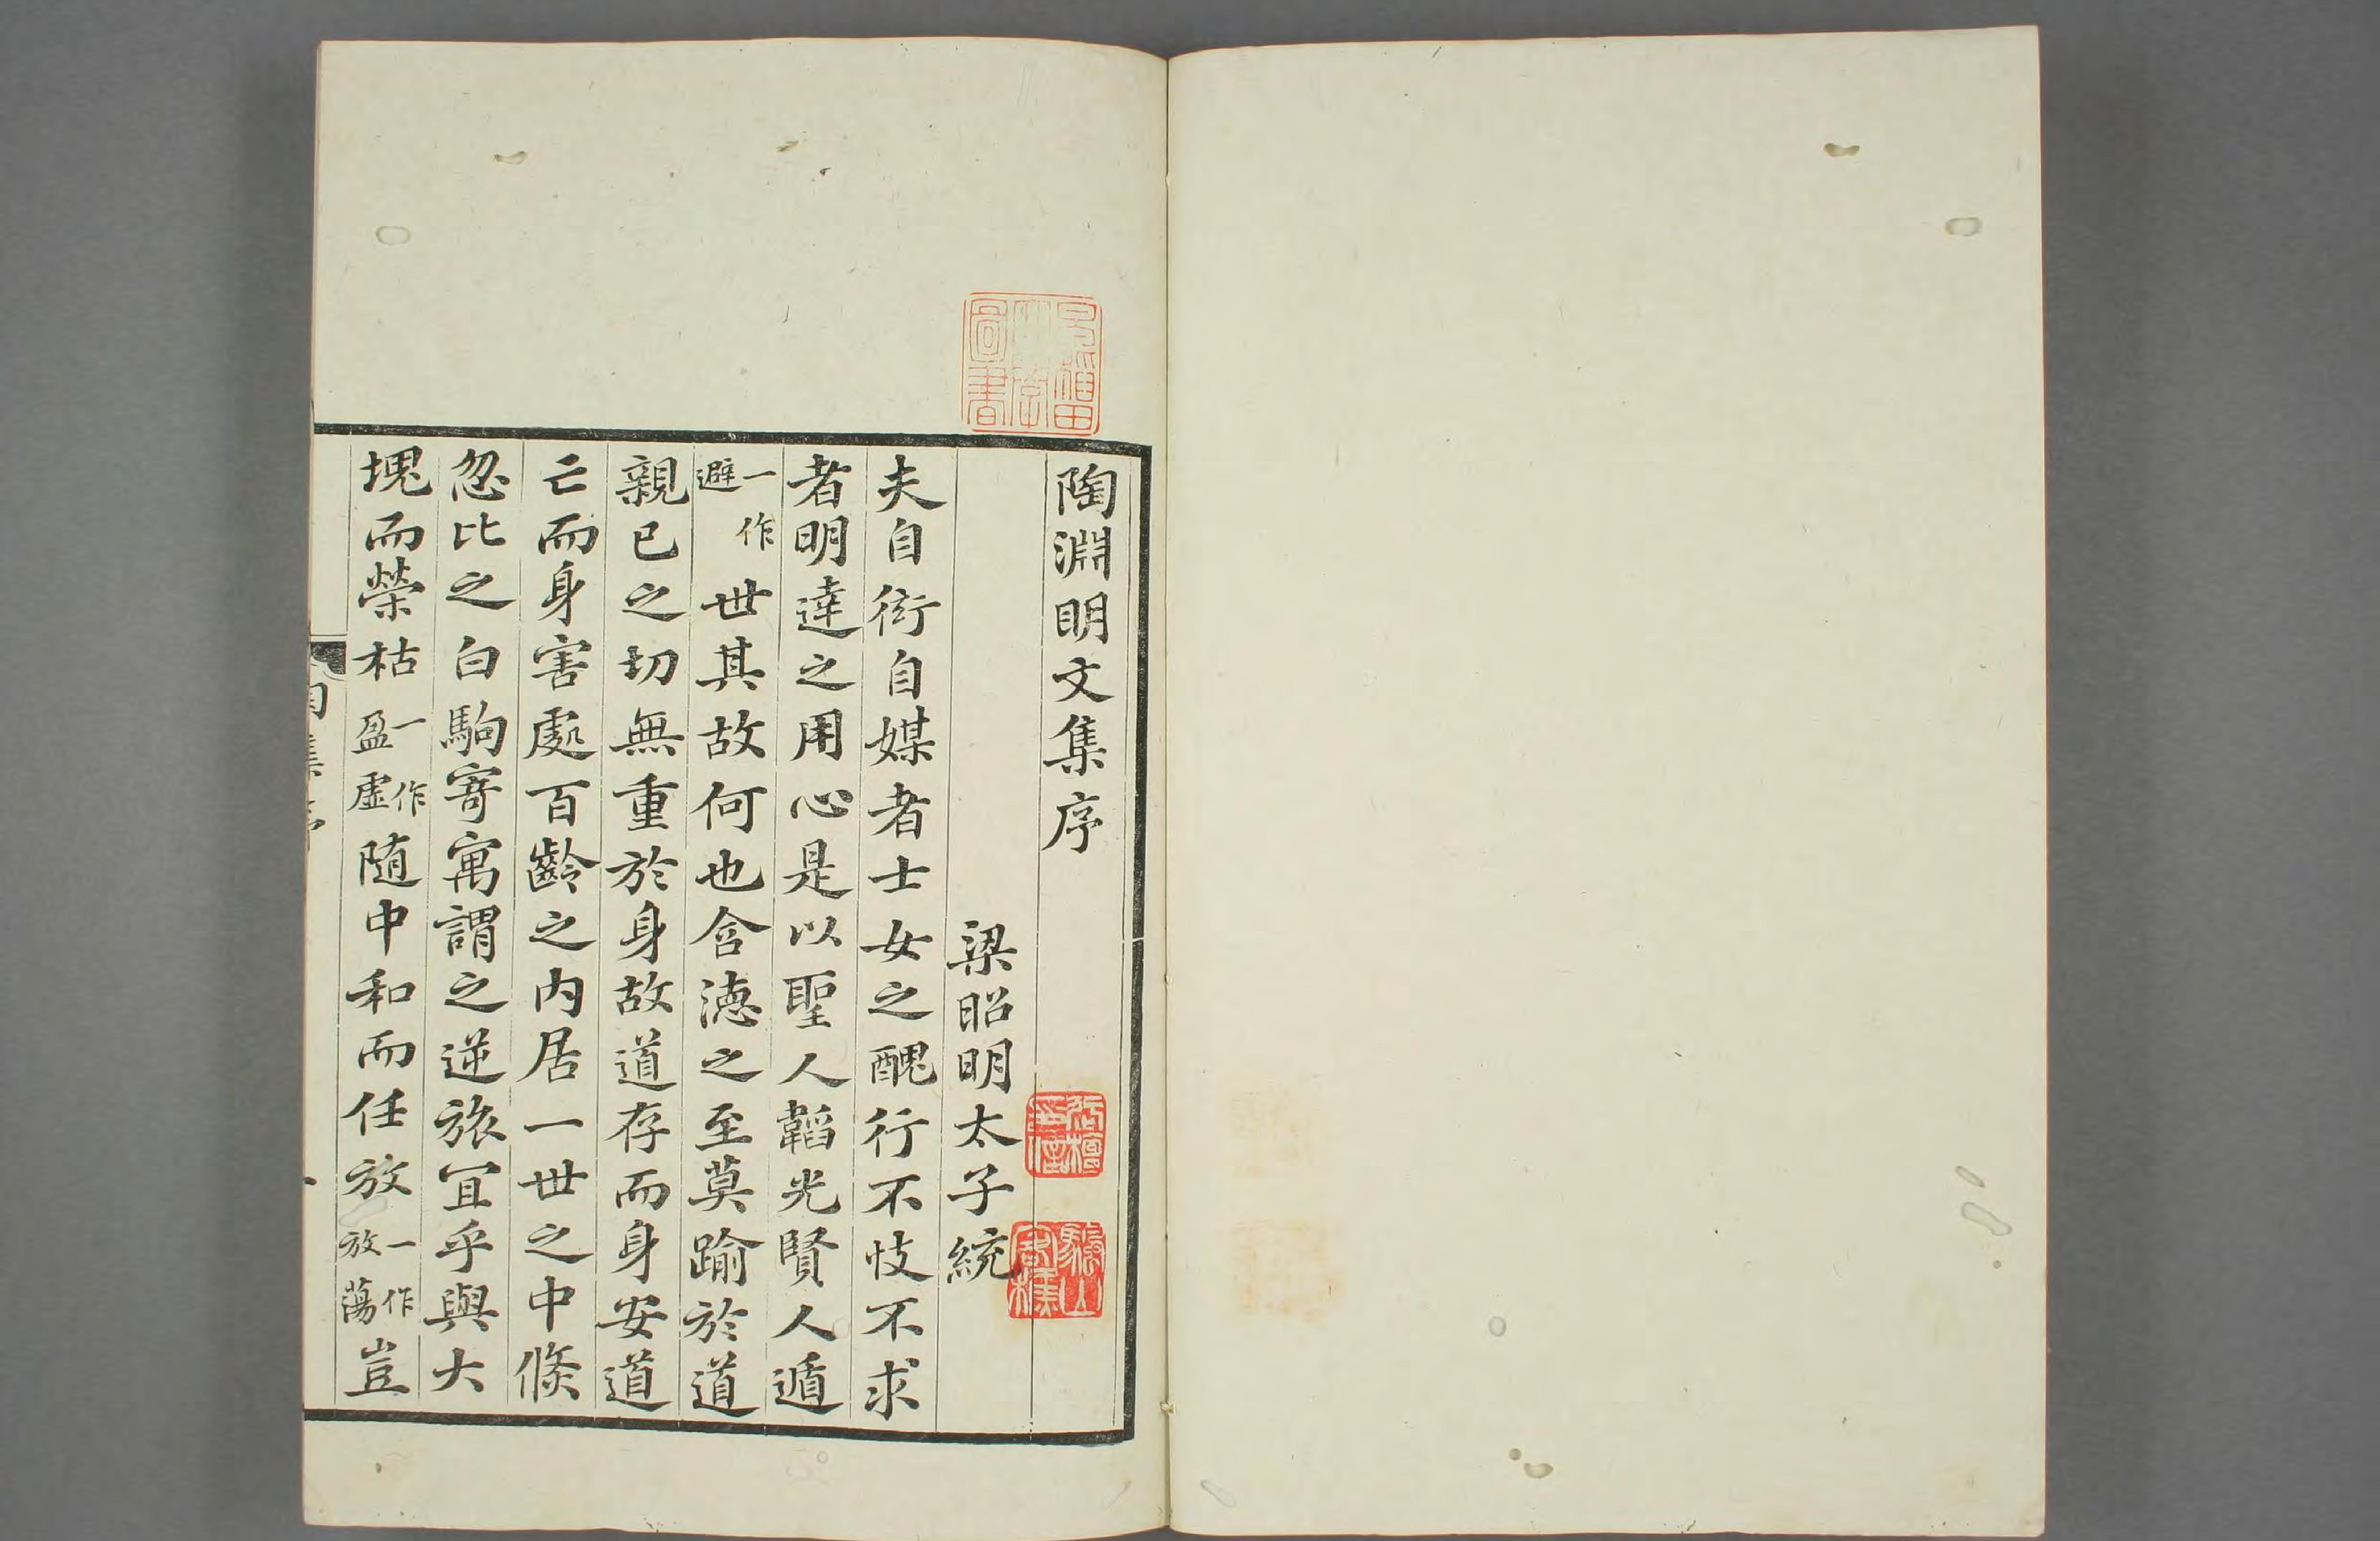 陶淵明文集序
梁昭明太子統
夫自衒自媒者士女之醜行不忮不求
者明達之用心是以聖人韜光賢人遁
一作避世其故何也含德之至莫踰於道
親已之切無重於身故道存而身安道
亡而身害處百齡之內居一世之中倐
忽比之白駒寄寓謂之逆旅宜乎與大
塊而榮枯一作盈虛随中和而任放一作放蕩豈
早稲田大学圖書